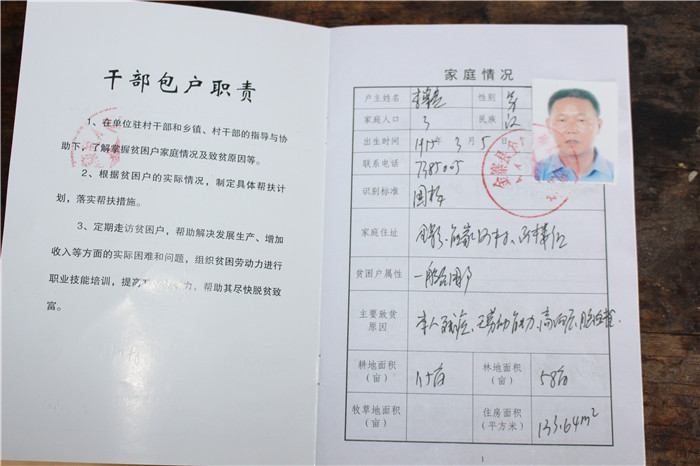 干部包户职责
1、在单位驻村干部和乡镇、村干部的指导与协
助下，了解掌握贫困户家庭情况及致贫原因等。
2、根据贫困户的实际情况，制定具体帮扶计
划，落实帮扶措施。
3、定期走访贫困户，帮助解决发展生产、增加
收入等方面的实际困难和问题，组织贫困劳动力进行
职业技能培训，提高 力，帮助其尽快脱贫致
富。
家庭情况
户主姓名 性别 男
家庭人口 3 民族 汉
出生时间 年 3 月 5 日
联系电话 7385005
识别标准 国标
家庭住址
贫困户属性 一般贫困户
主要致贫 本人 无劳动能力、高血压、
原因
耕地面积 林地面积
（亩） 亩 （亩） 58亩
牧草地面积 住房面积
（亩） （平方米） 133.64m²
1